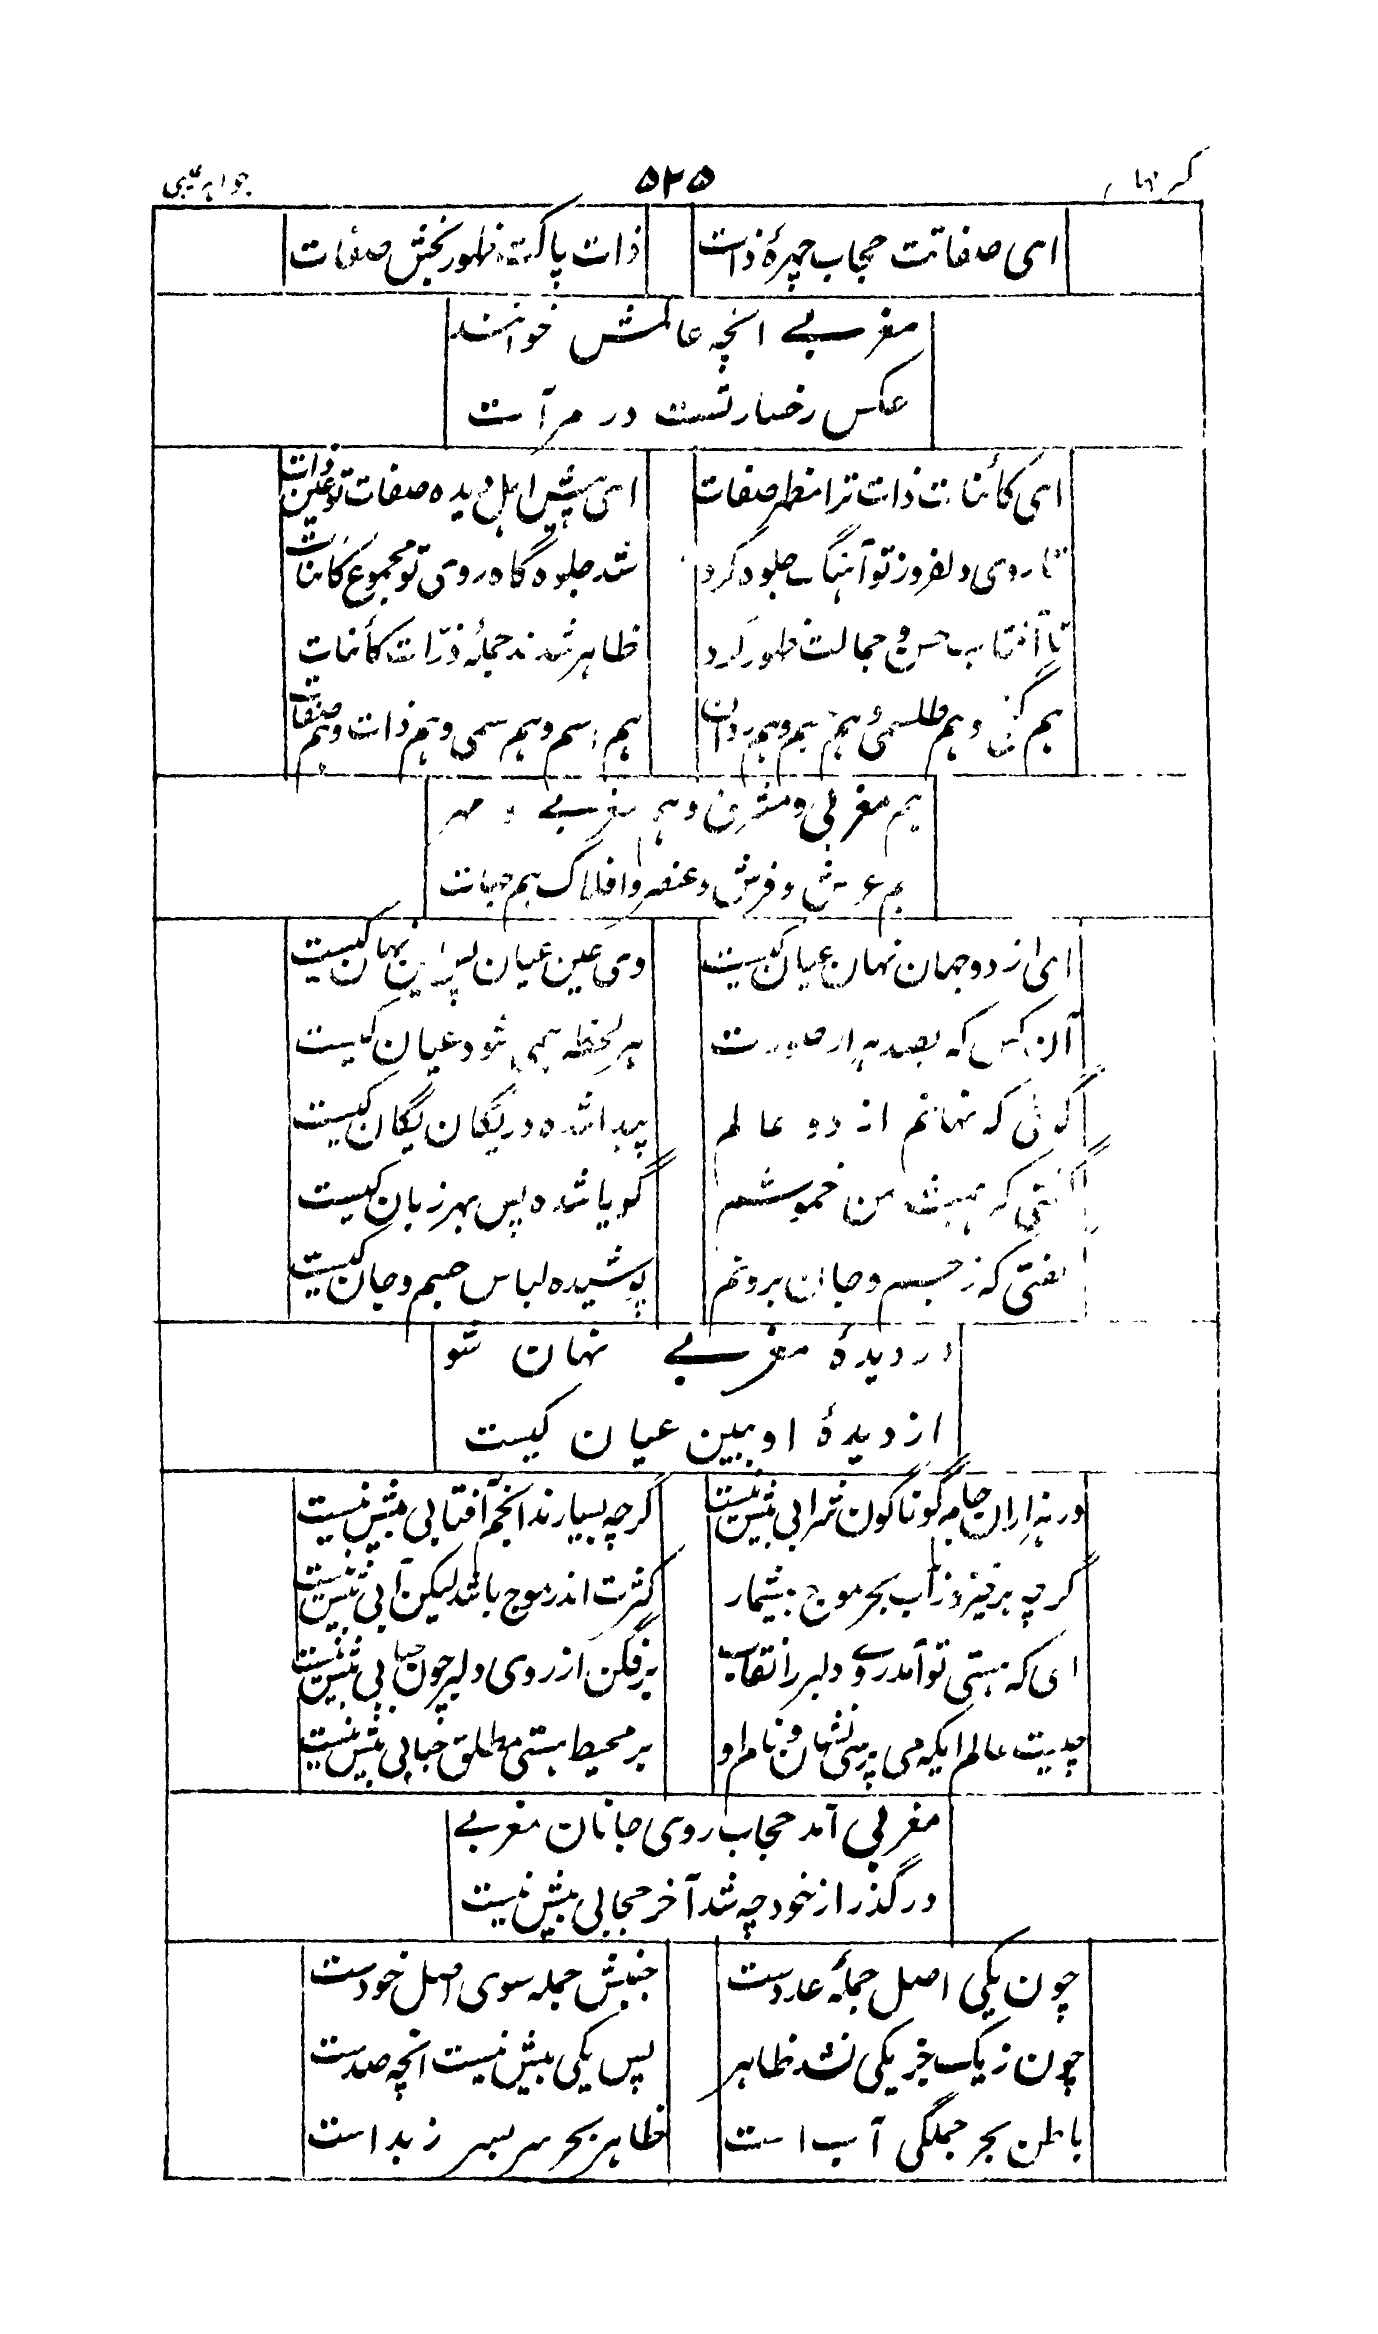 ۵۲۵
جواہر غیبی
ای صفاتت حجاب چہرۂ ذات ست
ذات پاکت ظہور بخش صفات
مغربے انچہ عالمش خوانند
عکس رخسار تست در مرآت
ای کائنات ذات ترا مظہر صفات
ای پیش اہل دیدہ صفات تو عین ذات
تا روی دلفروز تو آہنگ جلوہ کرد
شد جلوہ گاہ روی تو مجموع کائنات
تا آفتاب حسن و جمالت ظہور کرد
ظاہر شدند جملۂ ذرّات کائنات
ہم گنج و ہم طلسمی و ہم جسم و ہم روان
ہم اسم و ہم سمی و ہم ذات و ہم صفات
ہم مغربی و مشرق و ہم مغربے و مہر
ہم عرش و فرش و عنصر و افلاک ہم جہات
ای از دو جہان نہان عیان کیست
وی عین عیان پس این نہان کیست
آن کس کہ بصد ہزار صورت
ہر لحظہ ہمی شود عیان کیست
گوئی کہ نہانم از دو عالم
پیدا شدہ در یگان یگان کیست
گفتی کہ ہمیشہ من خموشم
گویا شدہ پس بہر زبان کیست
گفتی کہ ز جسم و جان برونم
پوشیدہ لباس جسم و جان کیست
در دیدۂ مغربے نہان شو
از دیدۂ او ببین عیان کیست
در ہزاران جامہ گوناگون شرابی بیش نیست
گرچہ بسیارند انجم آفتابی بیش نیست
گرچہ برخیزد ز آب بحر موج بیشمار
کثرت اندر موج باشد لیکن آبی بیش نیست
ای کہ ہستی تو آمد روے دلبر را نقاب
برفکن از روی دلبر چون حجابی بیش نیست
چیست عالم ایکہ می پرسی نشان و نام او
بر محیط ہستی مطلق حبابی بیش نیست
مغربی آمد حجاب روی جانان مغربے
درگذر از خود چہ شد آخر حجابی بیش نیست
چون یکی اصل جملۂ عددست
جنبش جملہ سوی اصل خودست
چون ز یک جز یکی نشد ظاہر
پس یکی بیش نیست انچہ صدست
باطن بحر جملگی آب است
ظاہر بحر سربسر زبد است